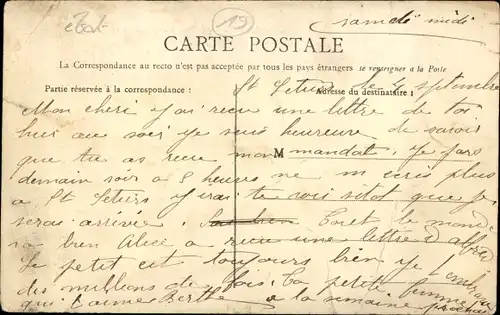 état
19
samedi midi
CARTE POSTALE
La Correspondance au recto n'est pas acceptée par tous les pays étrangers se renseigner a la Poste
Partie réservée à la correspondance :
Adresse du destinataire :
St Setiers le 4 septembre
Mon cheri j'ai recu une lettre de toi
hier au soir je suis heureuse de savoir
que tu as recu mon mandat. Je pars
M
demain soir a 8 heures ne m ecris plus
a St Setiers j'irai te voir sitot que je
serai arrivée. Tout le monde
va bien Alice a recu une lettre d'alfred
Le petit est toujours bien je t'embrasse
des millions de fois. Ta petite femme
qui t'aime Berthe a la semaine prochaine